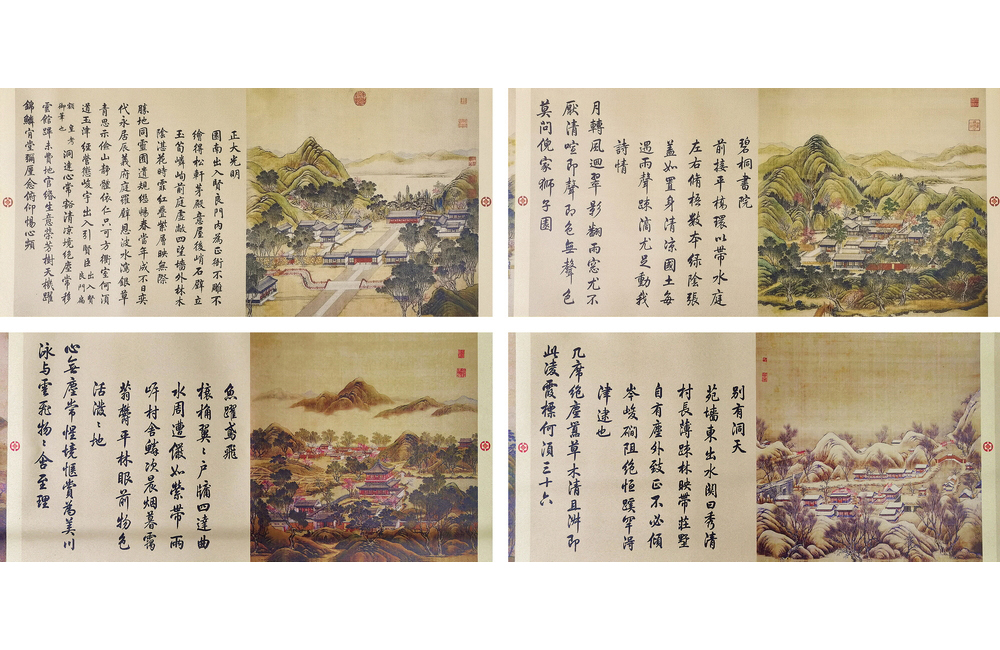 正大光明
園南出入賢良門內為正衙不雕不
繪得松軒茅殿意屋後峭石壁立
玉筍嶙峋前庭虛敞四望墻外林木
陰湛花時霏紅疊紫層映無際
勝地同靈囿遺規繼暢春當年成不日奕
代永居辰義府庭羅壁恩波水瀉銀草
青思示儉山靜體依仁只可方衢室何須
道玉津經營懲峻宇出入引賢臣出入賢良門扁
額皇考御筆也洞達心常豁清涼境絕塵常移
雲館蹕未費地官緡生意榮芳樹天機躍
錦鱗肯堂彌廑念俯仰惕心頻
碧桐書院
前接平橋環以帶水庭
左右脩梧數本綠陰張
蓋如置身清涼國土每
遇雨聲踈滴尤足動我
詩情
月轉風迴翠影翻雨窓尤不
厭清喧即聲即色無聲色
莫問倪家獅子園
魚躍鳶飛
榱桷翼翼戶牖四達曲
水周遭儼如縈帶兩
岸村舍鱗次晨烟暮靄
蓊鬱平林眼前物色
活潑潑地
心無塵常惺境愜賞為美川
泳與雲飛物物含至理
別有洞天
苑墻東出水關曰秀清
村長薄踈林映帶莊墅
自有塵外致正不必傾
岑峻磵阻絕恒蹊罕得
津逮也
几席絕塵囂草木清且淑即
此凌霞標何須三十六